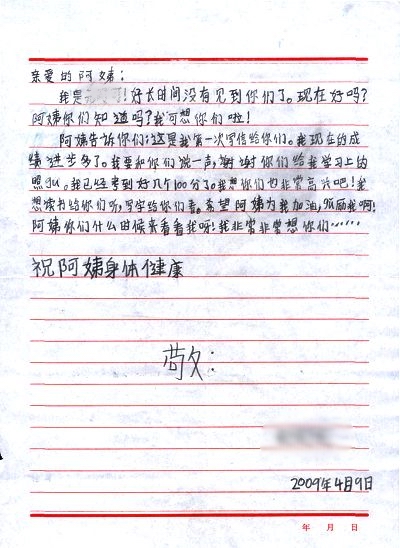 亲爱的阿姨：
我是！好长时间没有见到你们了。现在好吗？
阿姨你们知道吗？我可想你们啦！
阿姨告诉你们：这是我第一次写信给你们。我现在的成
绩进步多了。我要和你们说一声，谢谢你们给我学习上的
照似。我已经考到好几个100分了。我想你们也非常高兴吧！我
想读书给你们听，写字给你们看。希望阿姨为我加油，鼓励我啊！
阿姨你们什么时候来看看我呀！我非常非常想你们……
祝阿姨身体健康
敬：
2009年4月9日
年 月 日